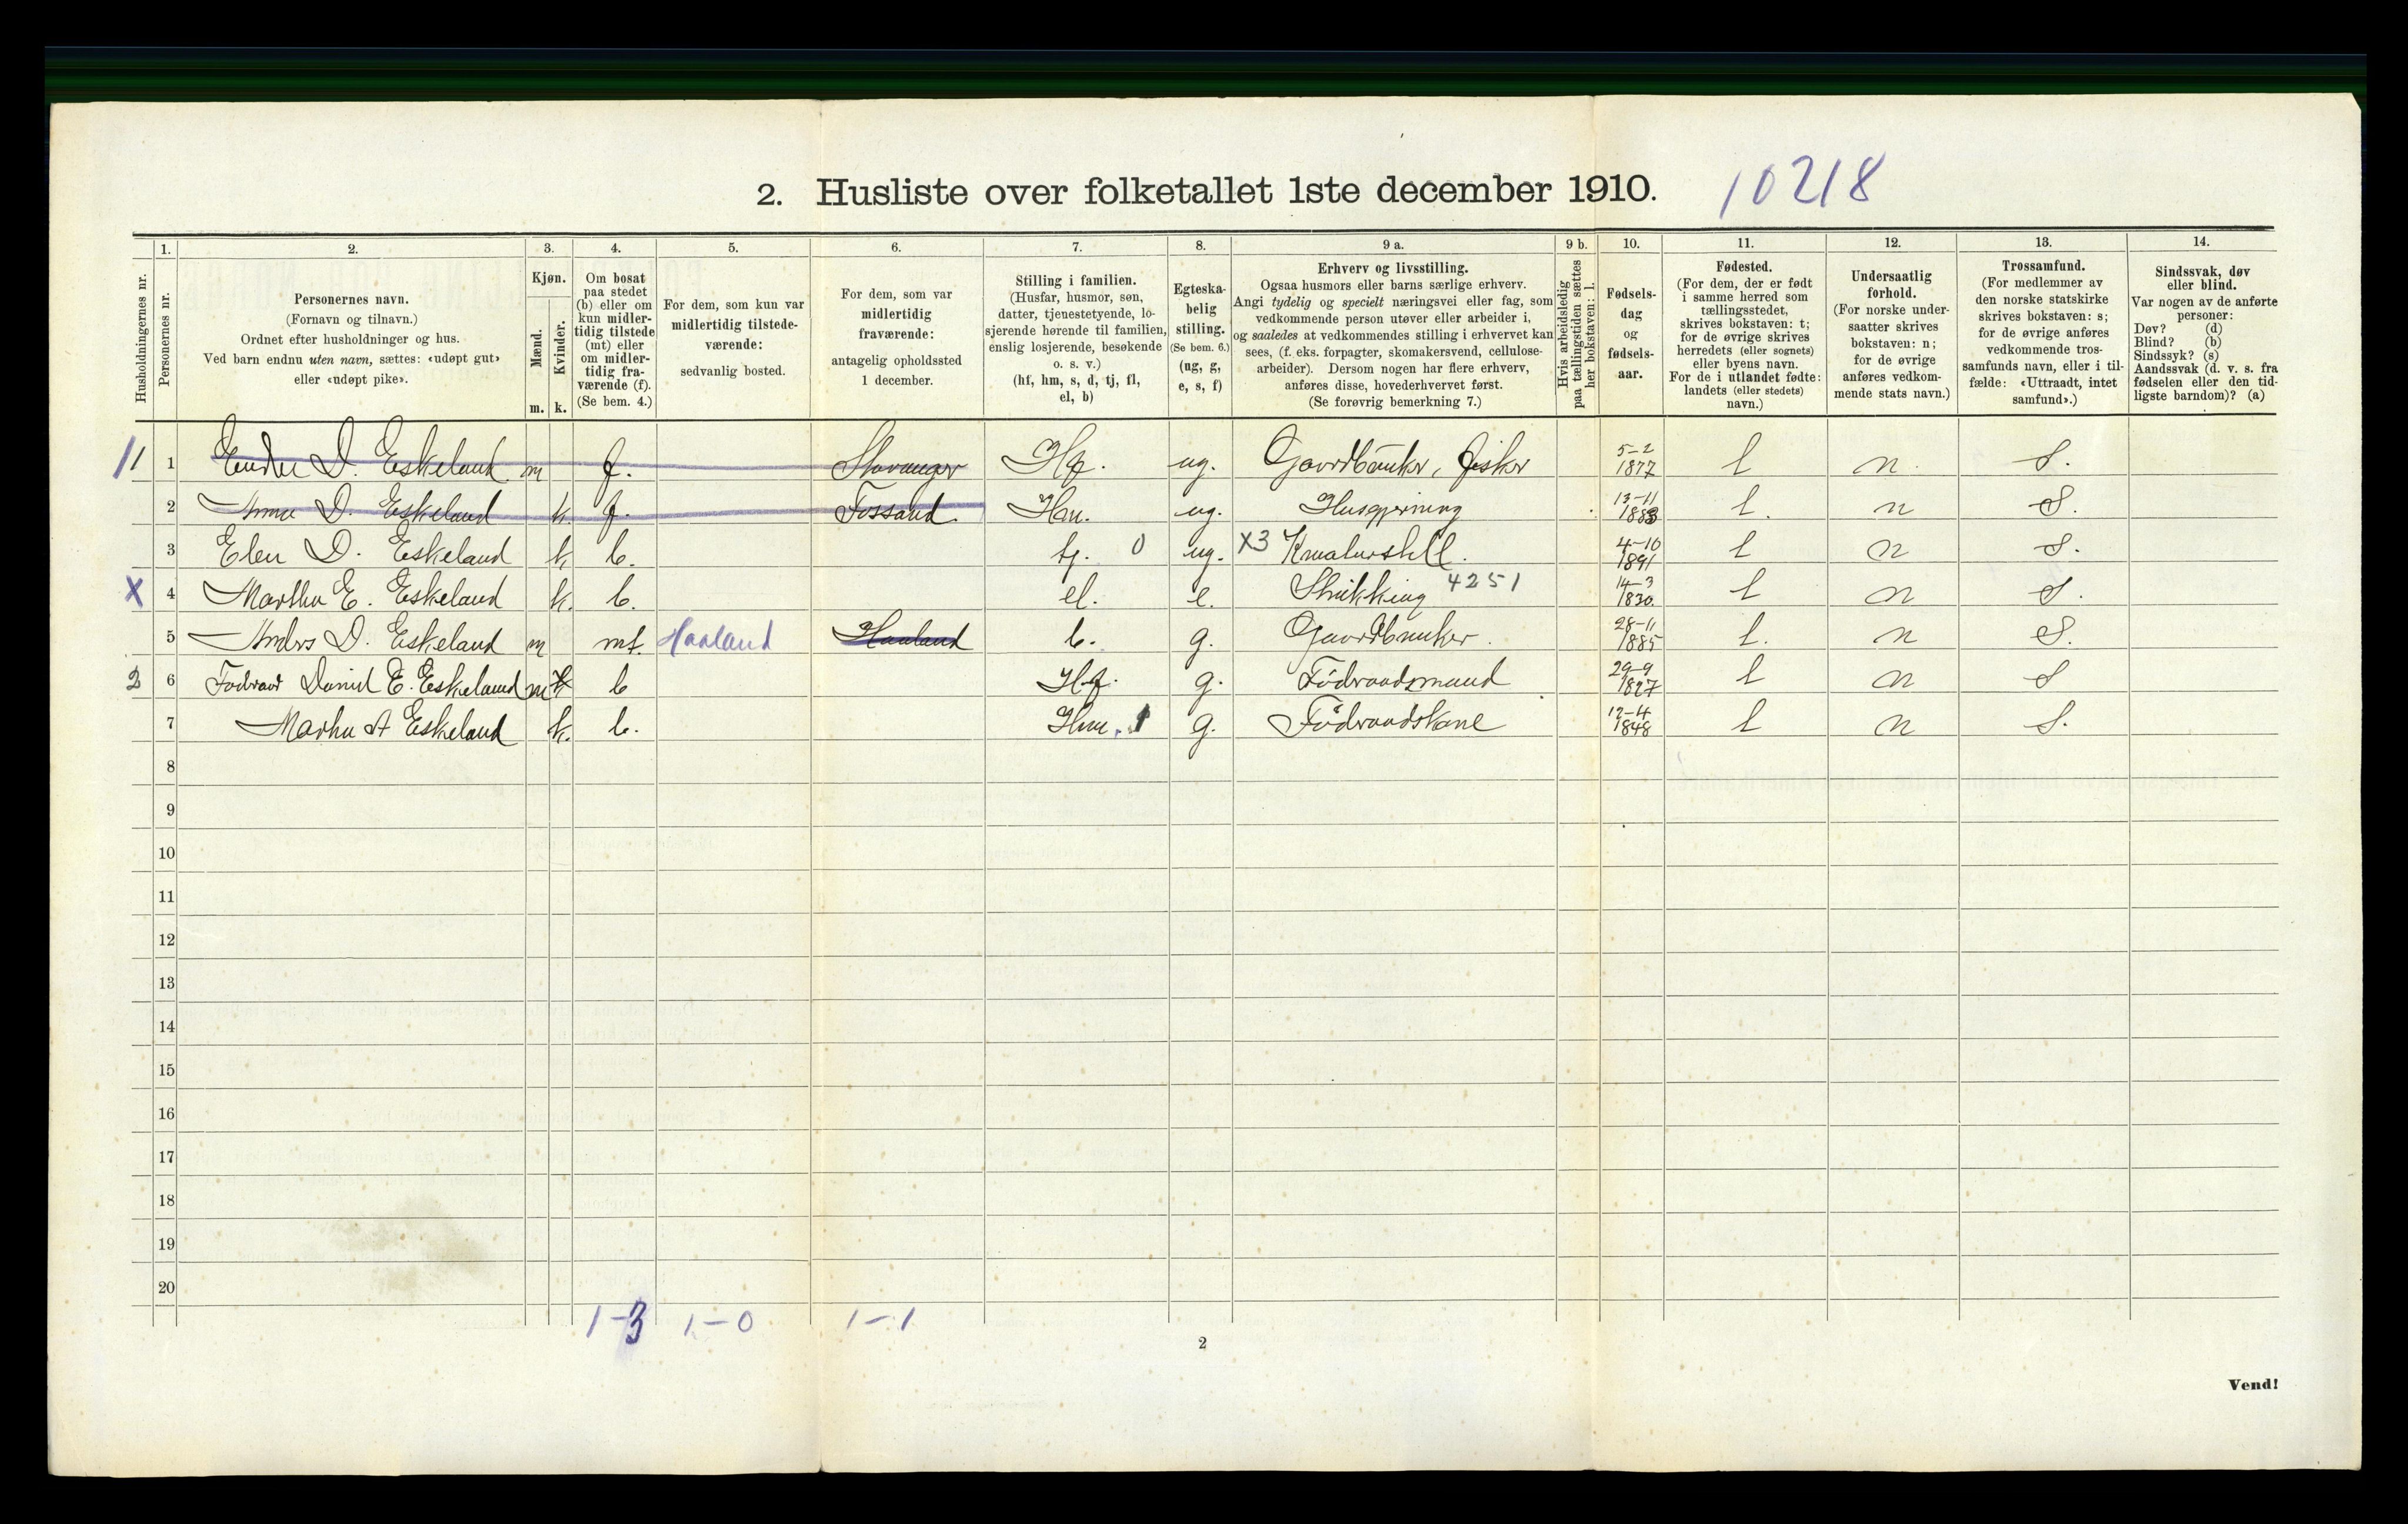 2. Husliste over folketallet 1ste december 1910. 10218
Husholdningernes nr.
1.
Personernes nr.
2.
Personernes navn.
(Fornavn og tilnavn.)
Ordnet efter husholdninger og hus.
Ved barn endnu uten navn, sættes: «udøpt gut»
eller «udøpt pike».
3.
Kjøn.
Mænd.
Kvinder.
m. k.
4.
Om bosat
paa stedet
(b) eller om
kun midler-
tidig tilstede
(mt) eller
om midler-
tidig fra-
værende (f).
(Se bem. 4.)
5.
For dem, som kun var
midlertidig tilstede-
værende:
sedvanlig bosted.
6.
For dem, som var
midlertidig
fraværende:
antagelig opholdssted
1 december.
7.
Stilling i familien.
(Husfar, husmor, søn,
datter, tjenestetyende, lo-
sjerende hørende til familien,
enslig losjerende, besøkende
o. s. v.)
(hf, hm, s, d, tj, fl,
el, b)
8.
Egteska-
belig
stilling.
(Se bem. 6.)
(ug, g,
e, s, f)
9 a.
Erhverv og livsstilling.
Ogsaa husmors eller barns særlige erhverv.
Angi tydelig og specielt næringsvei eller fag, som
vedkommende person utøver eller arbeider i,
og saaledes at vedkommendes stilling i erhvervet kan
sees, (f. eks. forpagter, skomakersvend, cellulose-
arbeider). Dersom nogen har flere erhverv,
anføres disse, hovederhvervet først.
(Se forøvrig bemerkning 7.)
9 b.
Hvis arbeidsledig
paa tællingstiden sættes
her bokstaven: l.
10.
Fødsels-
dag
og
fødsels-
aar.
11.
Fødested.
(For dem, der er født
i samme herred som
tællingsstedet,
skrives bokstaven: t;
for de øvrige skrives
herredets (eller sognets)
eller byens navn.
For de i utlandet fødte:
landets (eller stedets)
navn.)
12.
Undersaatlig
forhold.
(For norske under-
saatter skrives
bokstaven: n;
for de øvrige
anføres vedkom-
mende stats navn.)
13.
Trossamfund.
(For medlemmer av
den norske statskirke
skrives bokstaven: s;
for de øvrige anføres
vedkommende tros-
samfunds navn, eller i til-
fælde: «Uttraadt, intet
samfund».)
14.
Sindssvak, døv
eller blind.
Var nogen av de anførte
personer:
Døv? (d)
Blind? (b)
Sindssyk? (s)
Aandssvak (d. v. s. fra
fødselen eller den tid-
ligste barndom)? (a)
1 1 D. Eskeland m f. Stavanger Hf. ug. Gaardbruker, fisker 5-2 1877 t n. S.
2 Anna D. Eskeland k. f. Fossand Hm. ug. Husgjerning 13-11 1883 t. n S.
3 Elen D. Eskeland k b. tj. 0 ug. X3 Kreaturstell. 4-10 1891 t n S.
X 4 Martha E. Eskeland k. b. el. e. Strikking 4251 14-3 1830. t n S.
5 Anders D. Eskeland m mt. Haaland Haaland b. g. Gaardbruker. 28-11 1885 t. n S.
2 6 Foderaad Daniel E. Eskeland m k b Hf. g. Föderaadsmand 29-9 1827 t n S
7 Martha A Eskeland k. b. Hm. 1 g. Föderaadskone 12-4 1848 t n S.
8
9
10
11
12
13
14
15
16
17
18
19
20
1-3 1-0 1-1
2
Vend!